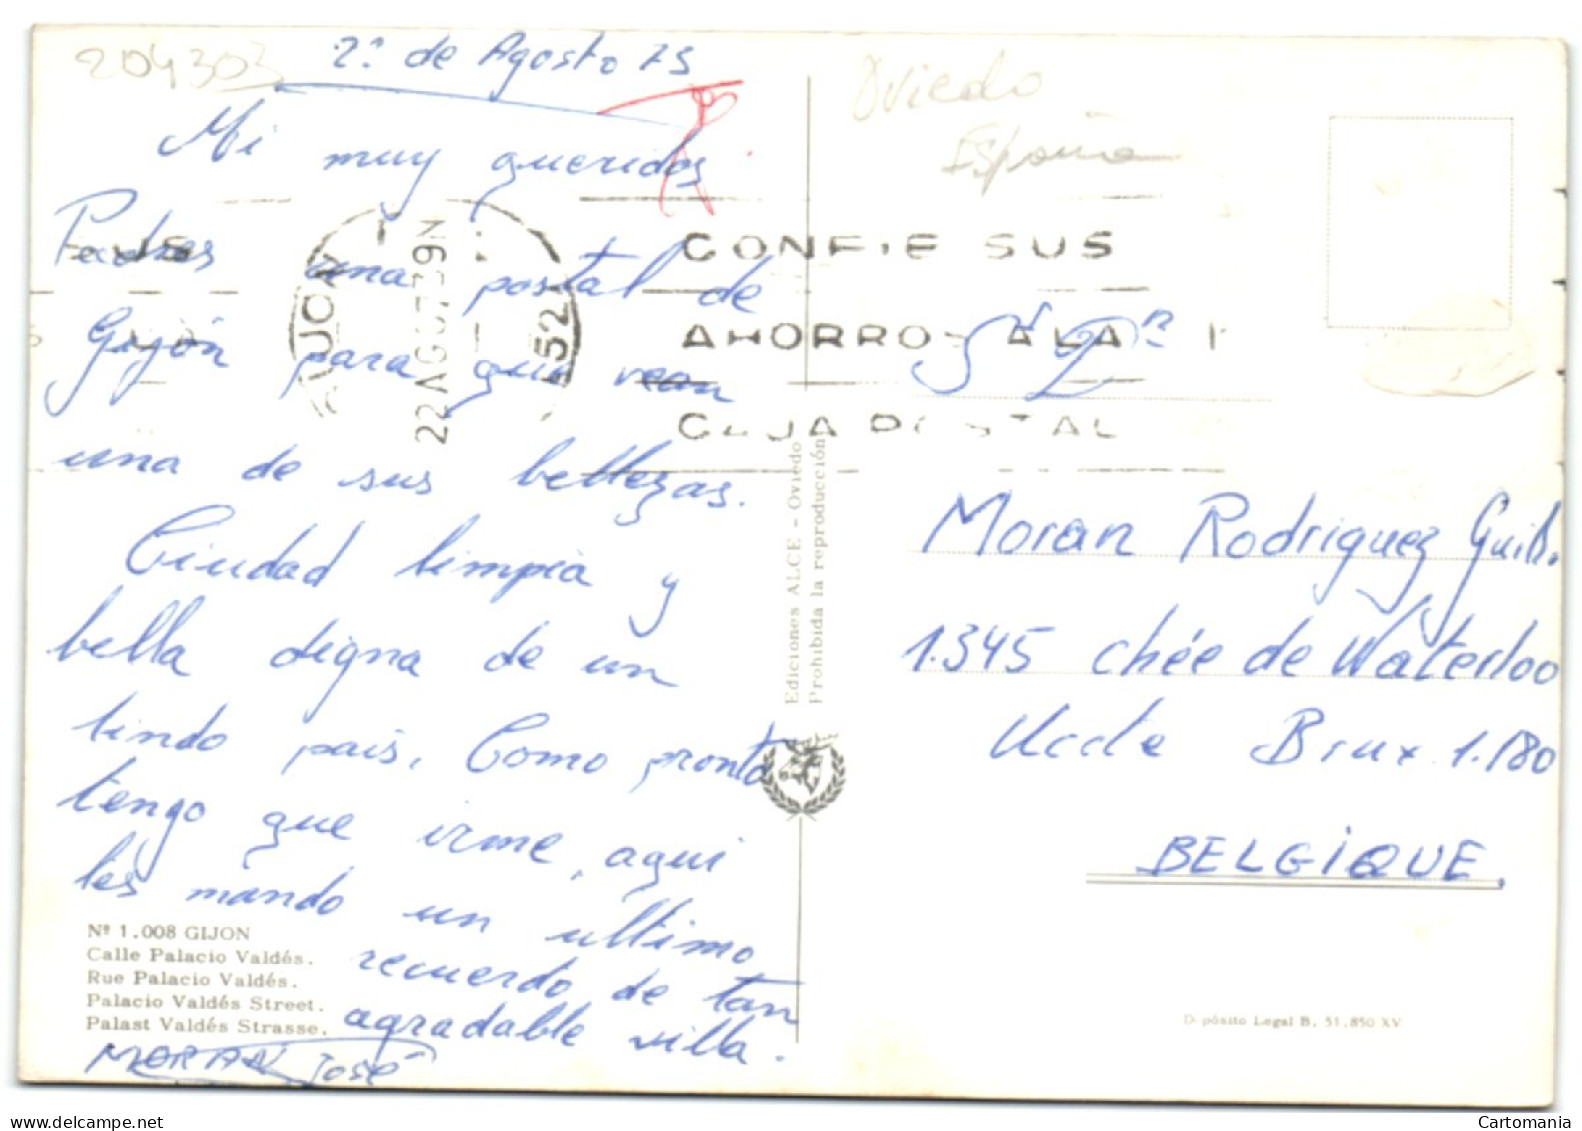 204303
2º de Agosto 75
Oviedo
España
Mi muy queridos
Padres una postal de
Gijón para que vean
una de sus bellezas.
Ciudad limpia y
bella digna de un
lindo pais. Como pronto
tengo que irme, aqui
les mando un ultimo
recuerdo de tan
agradable villa.
MORAN José
Nº 1.008 GIJON
Calle Palacio Valdés.
Rue Palacio Valdés.
Palacio Valdés Street.
Palast Valdés Strasse.
GIJON
22 AGO 73 9N
CONFIE SUS
AHORROS A LA
CAJA POSTAL
Ediciones ALCE - Oviedo
Prohibida la reproducción
Moran Rodriguez Guill.
1.345 chée de Waterloo
Uccle Brux 1.180
BELGIQUE.
Depósito Legal B. 51.850 XV
Cartomania